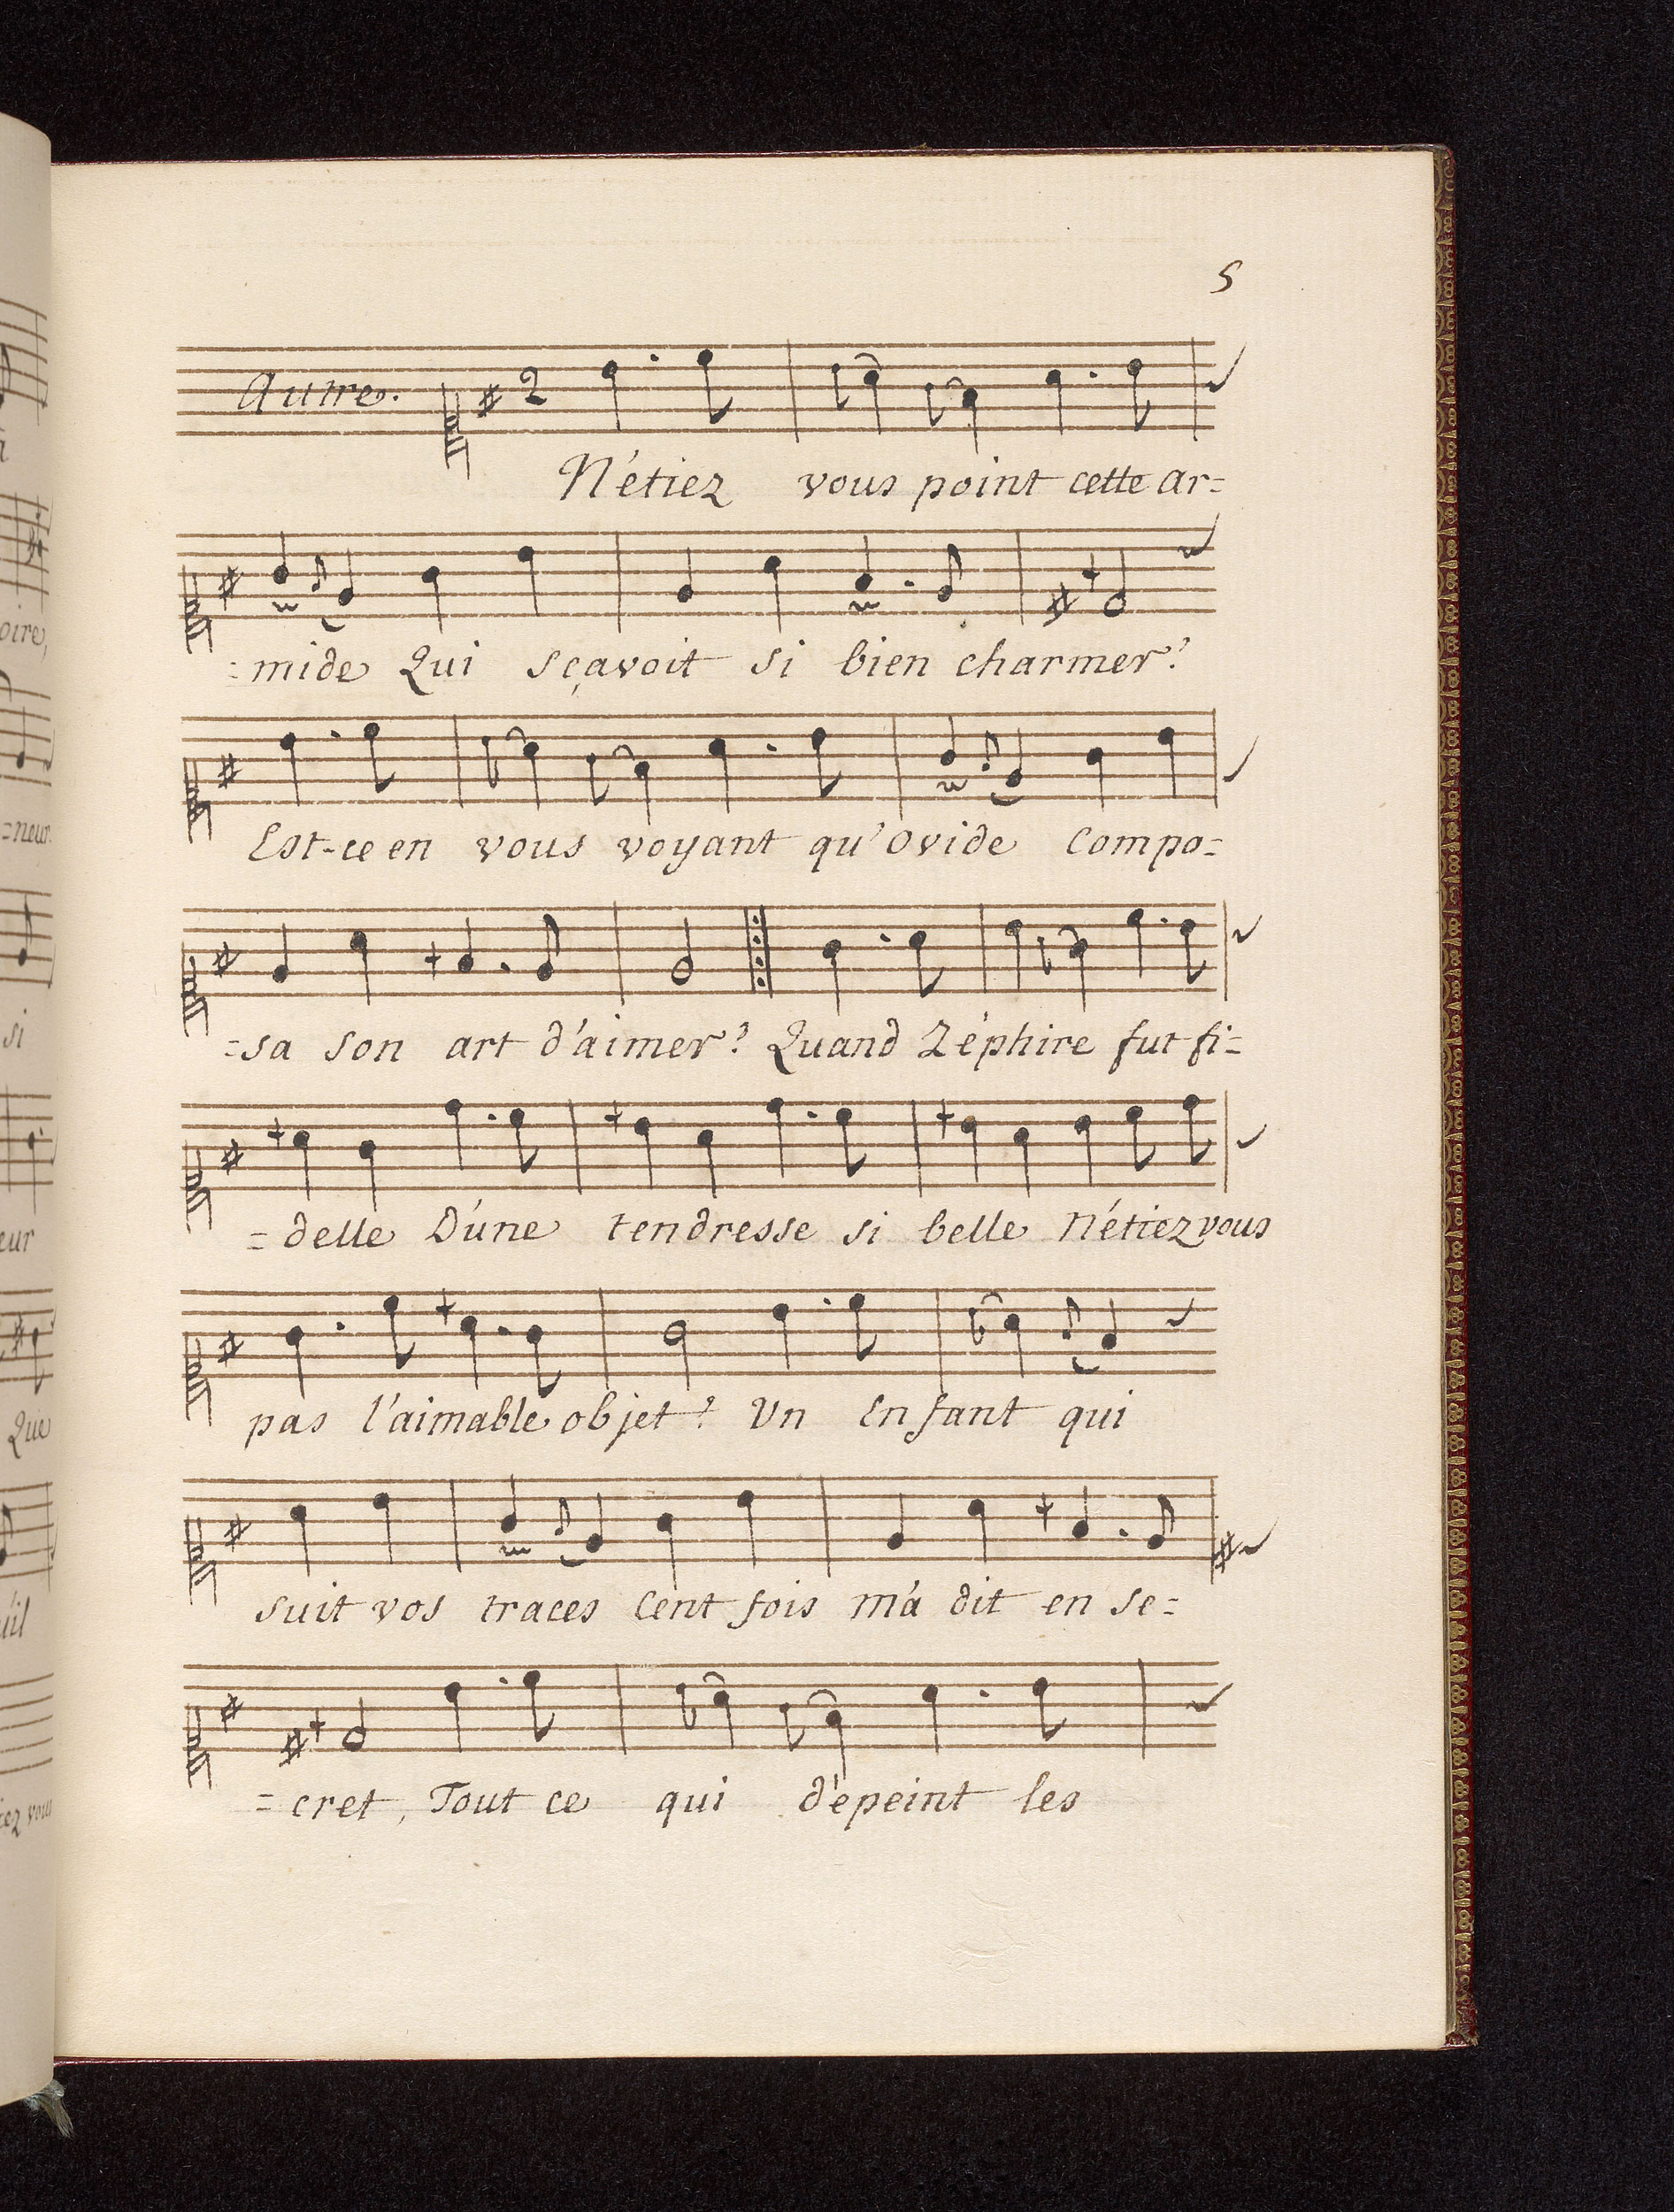 5
Autre.
2
N'étiez vous point cette ar=
=mide Qui sçavoit si bien charmer?
Est-ce en vous voyant qu'Ovide Compo=
=sa son art d'aimer? Quand Zéphire fut fi=
=delle D'une tendresse si belle N'étiez vous
pas l'aimable objet? Un Enfant qui
suit vos traces Cent fois m'a dit en se=
=cret, Tout ce qui dépeint les
oire,
=neur
si
eur
Que